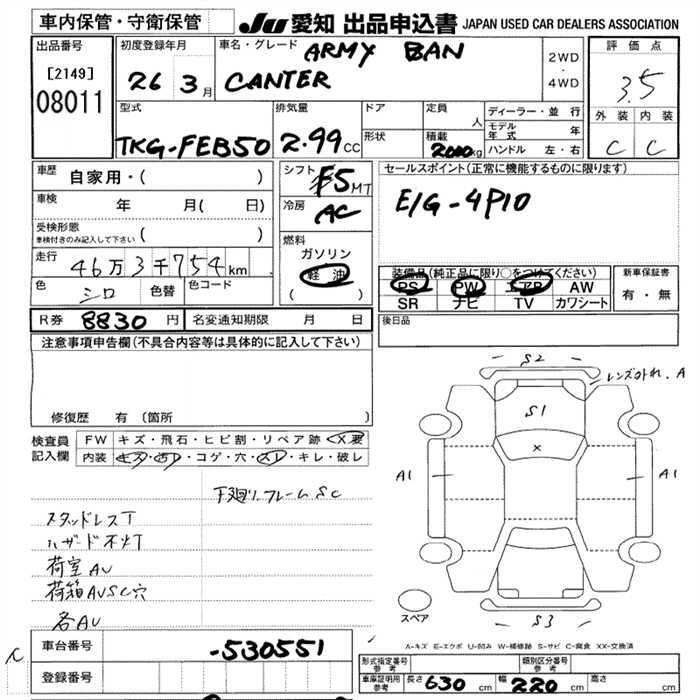 車内保管・守衛保管 JU 愛知 出品申込書 JAPAN USED CAR DEALERS ASSOCIATION
出品番号 初度登録年月 車名・グレード ARMY BAN 2WD ・ 4WD 評価点
[2149] 08011 26 3月 CANTER 3.5
型式 排気量 ドア 定員 人 ディーラー・並行 外装 内装
TKG-FEB50 2.99CC 形状 積載 2000kg モデル年式 年 ハンドル 左・右 C C
車歴 自家用・( ) シフト F5MT セールスポイント(正常に機能するものに限ります)
車検 年 月( 日) 冷房 AC E/G-4P10
受検形態 車検付きのみ記入して下さい ( )
燃料 ガソリン 軽油 ( )
走行 46万3千754km 装備品(純正品に限り○をつけてください) 新車保証書
色 シロ 色替 色コード PS PW エアB AW 有・無
SR ナビ TV カワシート
R券 8830円 名変通知期限 月 日 後日品
注意事項申告欄(不具合内容等は具体的に記入して下さい)
修復歴 有(箇所
S2 レンズワレ. A
S1
×
A1 A1
S3
スペア
検査員記入欄 FW キズ・飛石・ヒビ割・リペア跡・X要
内装 キズ・汚レ・コゲ・穴・スレ・キレ・破レ
下廻り.フレームSC
スタッドレスT
ハザード不灯
荷室AU
荷箱AUSC穴
各AU
A-キズ E-エクボ U-凹み W-補修跡 S-サビ C-腐食 XX-交換済
車台番号 -530551
登録番号
型式指定番号 参考 類別区分番号 参考
車庫証明用 参考 長さ 630cm 幅 220cm 高さ cm